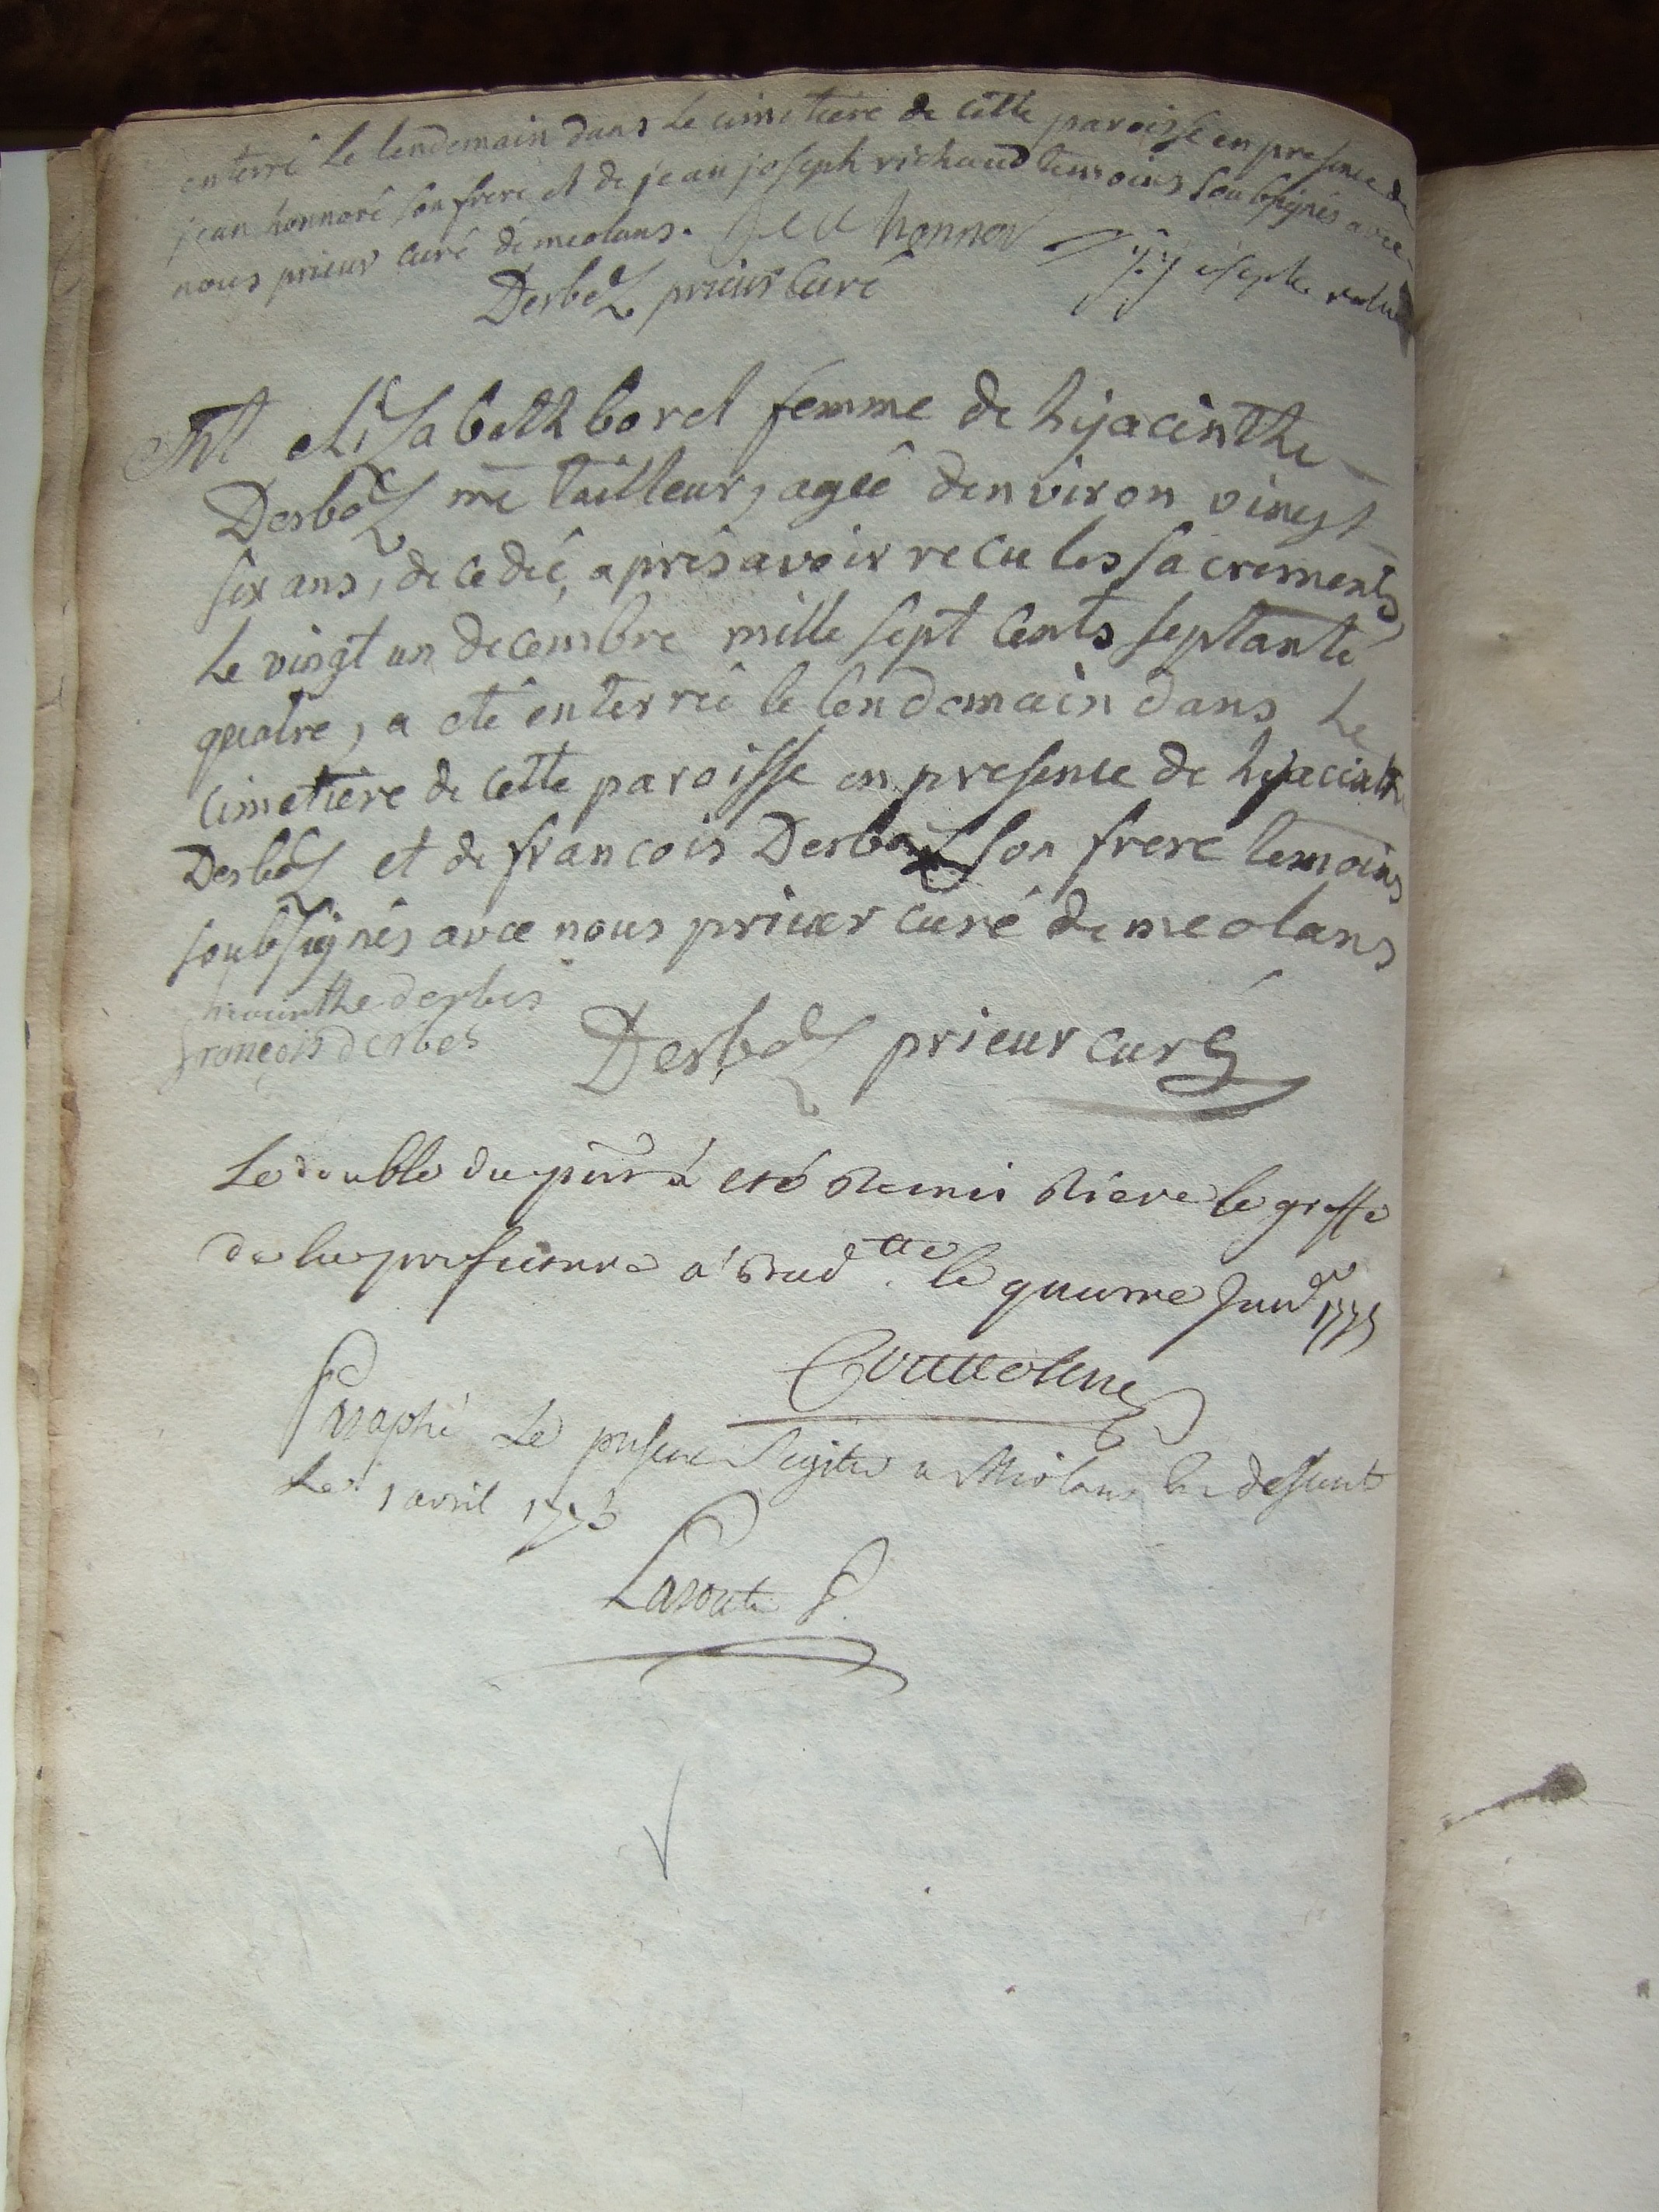 enterré le lendemain dans le cimetiere de cette paroisse en presence de
jean honnoré son frere et de jean joseph richaud temoins soubsignés avec
nous prieur curé de meolans. jea honnor
Derbez prieur curé
Mt elizabeth borel femme de hyacinthe
Derbez me tailleur, agée denviron vingt
six ans, decedée, aprés avoir recu les sacrements
le vingt un decembre mille sept cents septante
quatre, a eté enterreé le lendemain dans le
cimetiere de cette paroisse en presence de hyacinthe
Derbez et de francois Derbez son frere temoins
soubsignés avce nous prieur curé de meolans
hiacinthe derbes
françois derbes
Derbez prieur curé
Le double du pnt a eté remis riere le greffe
de la prefecture a le janv 1775
Paraphé le present registre a Meolans
Le 1 avril 1775